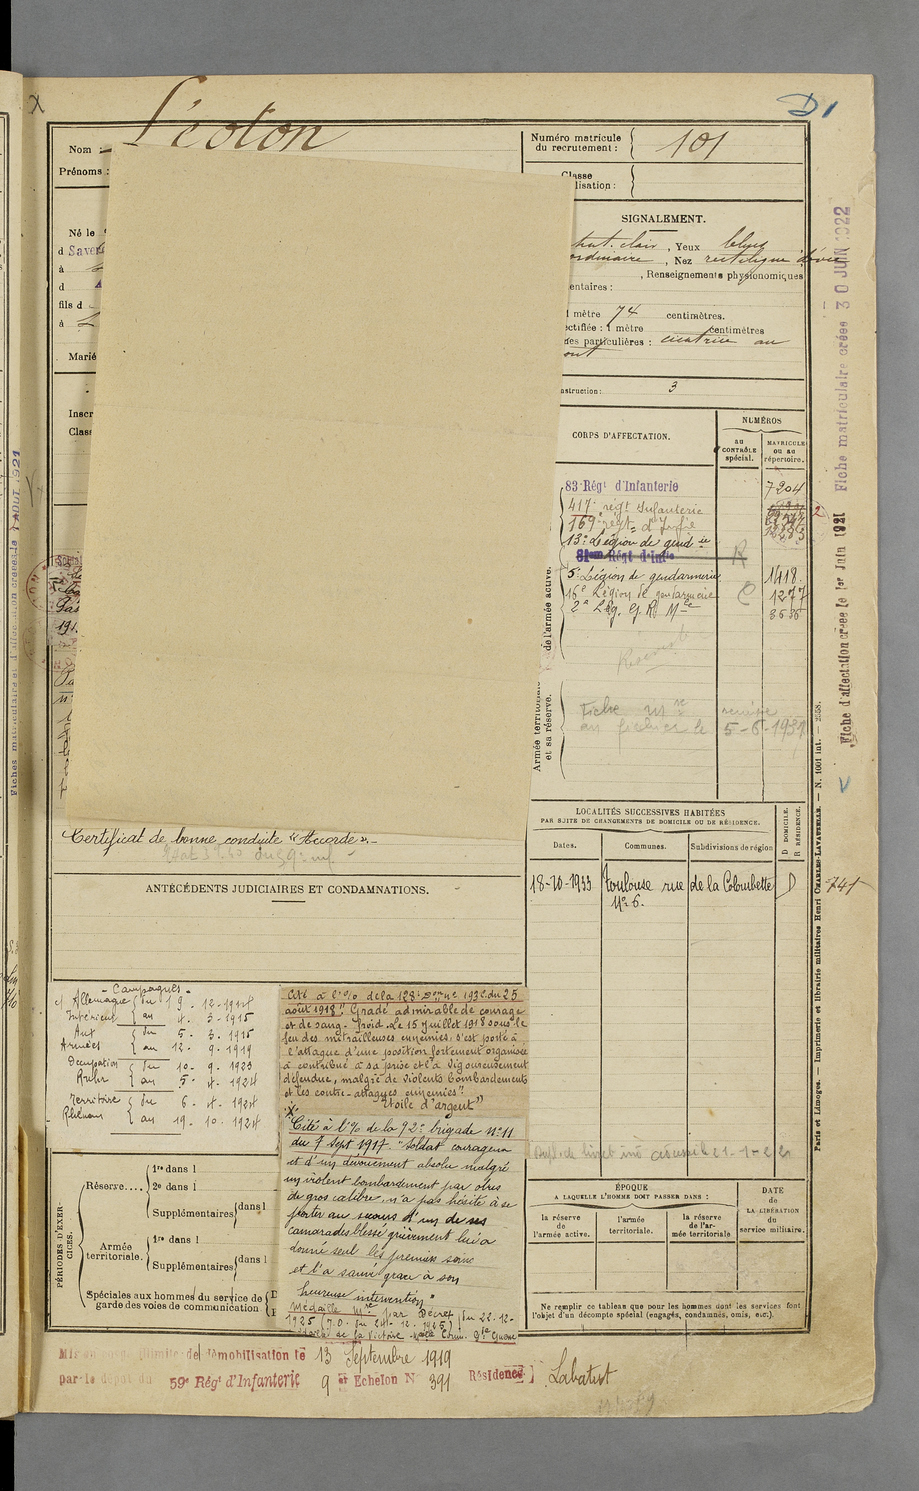 X
D1
Nom :
Prénoms :
Né le
d Saver
à
d
fils d
à
Marié
Inscr
Class
Numéro matricule
du recrutement :
101
Classe
lisation :
SIGNALEMENT.
chat. clair, Yeux bleus
ordinaire, Nez rectiligne
, Renseignements physionomiques
entaires :
1 mètre 74 centimètres.
ectifiée : 1 mètre centimètres
es particulières : cicatrice au
ont
nstruction : 3
CORPS D'AFFECTATION.
NUMÉROS
AU CONTRÔLE spécial.
MATRICULE OU AU répertoire.
83 Régt d'Infanterie 7204
417e régt Infanterie
169e régt d'Infie
13e Légion de gendie
81eme Régt d'Infie
5e Légion de gendarmerie 1418
16e Légion de gendarmerie 1277
2e Lég. G. R. Mle 3535
de l'armée active.
Armée territoriale
et sa réserve.
Fiche mle remise
au fichier le 5-6-1931
Certificat de bonne conduite "Accordé".
ANTÉCÉDENTS JUDICIAIRES ET CONDAMNATIONS.
LOCALITÉS SUCCESSIVES HABITÉES
PAR SUITE DE CHANGEMENTS DE DOMICILE OU DE RÉSIDENCE.
Dates.
Communes.
Subdivisions de région
D DOMICILE.
R RÉSIDENCE.
18-10-1933 Toulouse rue de la Colombette D
N° 6.
741
- Campagnes -
c/ Allemagne
Intérieur
du 19-12-1914
au 4-3-1915
Aux
Armées
du 5-3-1915
au 12-9-1919
Occupation
Ruhr
du 10-9-1923
au 5-4-1924
Territoire
Rhénan
du 6-4-1924
au 19-10-1924
Cité à l'o/o de la 128e 193 C. du 25
août 1918 "Gradé admirable de courage
et de sang-froid. Le 15 juillet 1918 sous le
feu des mitrailleuses ennemies, s'est porté à
l'attaque d'une position fortement organisée
a contribué à sa prise et l'a vigoureusement
défendue, malgré de violents bombardements
et les contre-attaques ennemies"
"Etoile d'argent"
X
"Cité à l'o/o de la 92e brigade N° 11
du 7 Sept 1917. "Soldat courageux
et d'un dévouement absolu malgré
un violent bombardement par obus
de gros calibre, n'a pas hésité à se
porter au secours d'un de ses
camarades blessé grièvement lui a
donné seul les premiers soins
et l'a sauvé grâce à son
heureuse intervention"
Médaille Mre par Décret du 22-12-
1925 (J.O. du 24-12-1925)
de la Victoire
PÉRIODES D'EXERCICES.
Réserve....
1re dans l
2e dans l
Supplémentaires dans l
Armée
territoriale.
1re dans l
Supplémentaires dans l
Spéciales aux hommes du service de
garde des voies de communication
21-1-22
ÉPOQUE
A LAQUELLE L'HOMME DOIT PASSER DANS :
la réserve
de
l'armée active.
l'armée
territoriale.
la réserve
de l'ar-
mée territoriale
DATE
de
LA LIBÉRATION
du
service militaire.
Ne remplir ce tableau que pour les hommes dont les services font
l'objet d'un décompte spécial (engagés, condamnés, omis, etc.).
Mis en congé illimité de démobilisation le 13 Septembre 1919
par le dépôt du 59e Régt d'Infanterie 9 er Echelon N° 391 Résidence Labatut
Fiche d'affectation créée le 1er Juin 1921 Fiche matriculaire créée 30 JUIN 1922
Paris et Limoges. — Imprimerie et librairie militaires Henri CHARLES-LAVAUZELLE. — N. 1001 int. — 2558.